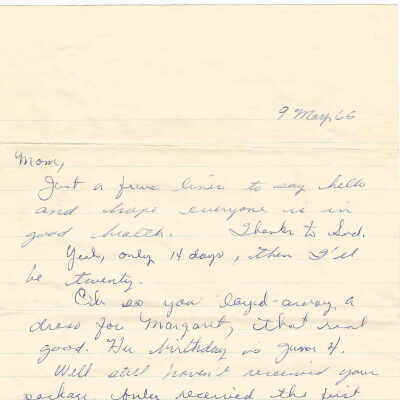 9 May 66
Mom,
Just a few lines to say hello
and hope everyone is in
good health. Thanks to Dad.
Yeah, only 14 days, then I'll
be twenty.
so you layed-away a
dress for Margaret, that real
good. Her birthday is June 4.
Well still haven't received your
package. Only received the first